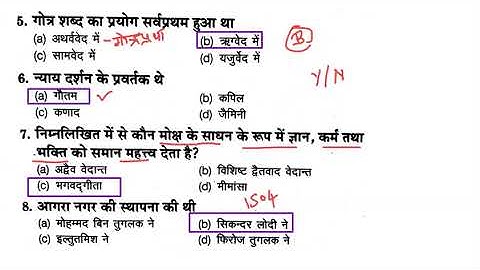 5. गोत्र शब्द का प्रयोग सर्वप्रथम हुआ था
(a) अथर्ववेद में - गोत्रप्रथा (b) ऋग्वेद में (B)
(c) सामवेद में (d) यजुर्वेद में
Y/N
6. न्याय दर्शन के प्रवर्तक थे
(a) गौतम ✓ (b) कपिल
(c) कणाद (d) जैमिनी
7. निम्नलिखित में से कौन मोक्ष के साधन के रूप में ज्ञान, कर्म तथा
भक्ति को समान महत्त्व देता है?
(a) अद्वैव वेदान्त (b) विशिष्ट द्वैतवाद वेदान्त
(c) भगवद्गीता (d) मीमांसा
8. आगरा नगर की स्थापना की थी 1504
(a) मोहम्मद बिन तुगलक ने (b) सिकन्दर लोदी ने
(c) इल्तुतमिश ने (d) फिरोज तुगलक ने